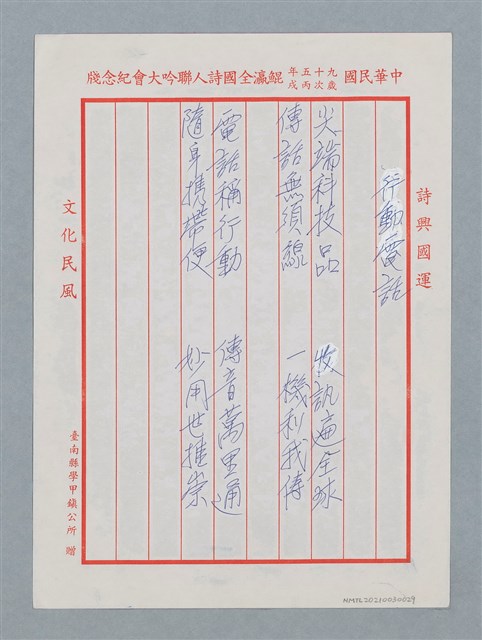 中華民國九十五年歲次丙戌鯤瀛全國詩人聯吟大會紀念牋
詩興國運
行動電話
尖端科技品 收訊遍全球
傳話無須線 一機利我傳
電話稱行動 傳音萬里通
隨身携帶便 妙用世推崇
文化民風
臺南縣學甲鎮公所 贈
NMTL20210030029